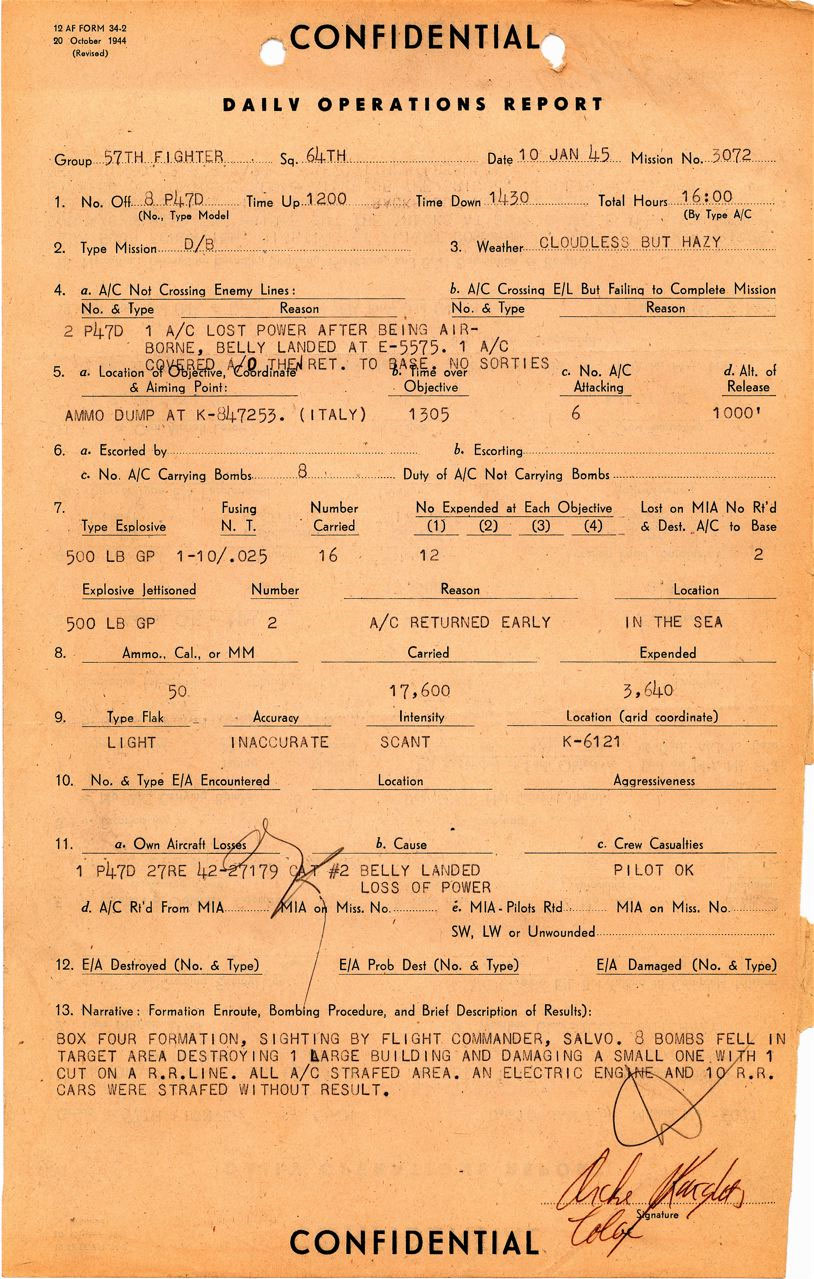 12 AF FORM 34-2
20 October 1944
(Revised)
CONFIDENTIAL
DAILY OPERATIONS REPORT
Group 57TH FIGHTER Sq. 64TH Date 10 JAN 45 Mission No. 3072
1. No. Off 8 P47D Time Up 1200 Time Down 1430 Total Hours 16:00
(No., Type Model (By Type A/C
2. Type Mission D/B 3. Weather CLOUDLESS BUT HAZY
4. a. A/C Not Crossing Enemy Lines: b. A/C Crossing E/L But Failing to Complete Mission
No. & Type Reason No. & Type Reason
2 P47D 1 A/C LOST POWER AFTER BEING AIR-
BORNE, BELLY LANDED AT E-5575. 1 A/C
COVERED A/O THEN RET. TO BASE, NO SORTIES
5. a. Location of Objective, Coordinate b. Time over c. No. A/C d. Alt. of
& Aiming Point: Objective Attacking Release
AMMO DUMP AT K-847253. (ITALY) 1305 6 1000'
6. a. Escorted by b. Escorting
c. No. A/C Carrying Bombs 8 Duty of A/C Not Carrying Bombs
7. Fusing Number No Expended at Each Objective Lost on MIA No Rt'd
Type Explosive N. T. Carried (1) (2) (3) (4) & Dest. A/C to Base
500 LB GP 1-10/.025 16 12 2
Explosive Jettisoned Number Reason Location
500 LB GP 2 A/C RETURNED EARLY IN THE SEA
8. Ammo., Cal., or MM Carried Expended
50 17,600 3,640
9. Type Flak Accuracy Intensity Location (grid coordinate)
LIGHT INACCURATE SCANT K-6121
10. No. & Type E/A Encountered Location Aggressiveness
11. a. Own Aircraft Losses b. Cause c. Crew Casualties
1 P47D 27RE 42-27179 CAT #2 BELLY LANDED PILOT OK
LOSS OF POWER
d. A/C Rt'd From MIA MIA on Miss. No. e. MIA-Pilots Rtd MIA on Miss. No.
SW, LW or Unwounded
12. E/A Destroyed (No. & Type) E/A Prob Dest (No. & Type) E/A Damaged (No. & Type)
13. Narrative: Formation Enroute, Bombing Procedure, and Brief Description of Results):
BOX FOUR FORMATION, SIGHTING BY FLIGHT COMMANDER, SALVO. 8 BOMBS FELL IN
TARGET AREA DESTROYING 1 LARGE BUILDING AND DAMAGING A SMALL ONE WITH 1
CUT ON A R.R.LINE. ALL A/C STRAFED AREA. AN ELECTRIC ENGINE AND 10 R.R.
CARS WERE STRAFED WITHOUT RESULT.
Signature
CONFIDENTIAL